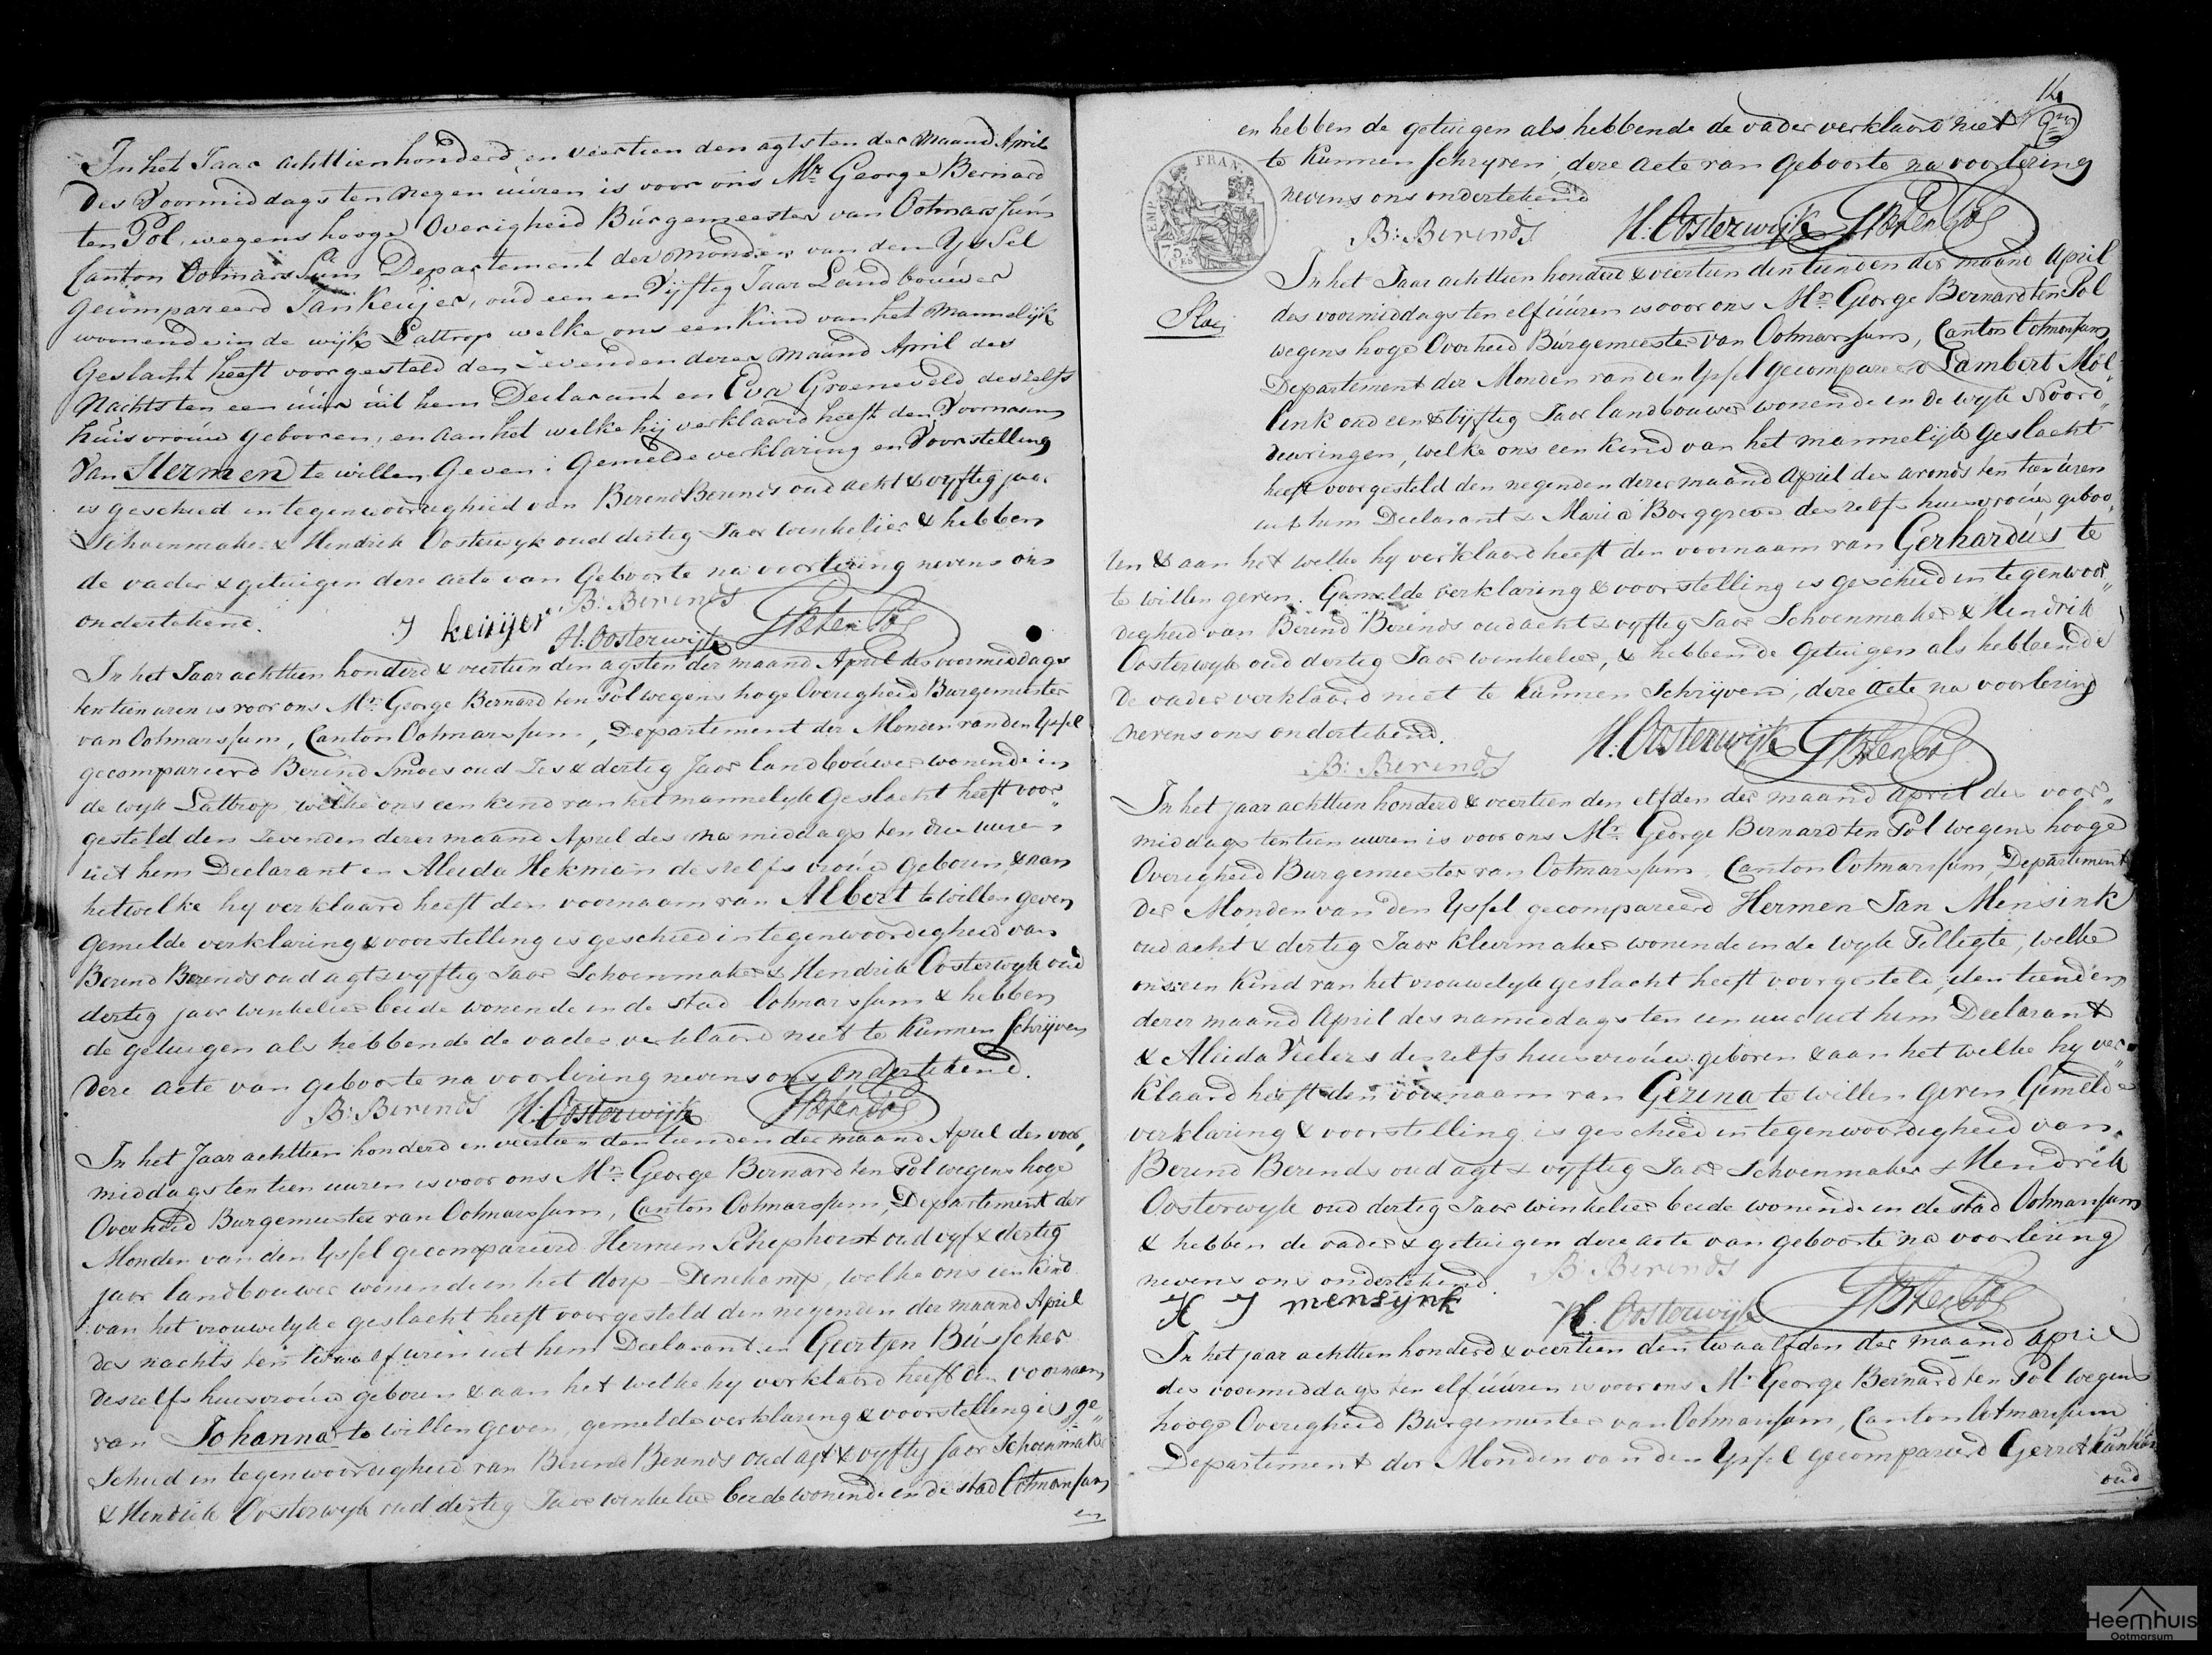 In het Jaar achttienhonderd en veertien den agtsten der maand April
des Voormiddags ten negen úúren is voor ons Mr George Bernard
ten Pol, wegens hooge Overigheid Búrgemeester van Ootmarssúm
Canton Ootmarssum Departement der monden van den Yssel
gecompareerd Jan Keujer, oud een en Vijftig Jaar Landbouwer
woonende in de wijk Lattrop welke ons een Kind van het Mannelijk
Geslacht heeft voorgesteld den Zevenden dezer maand April des
Nachts ten een úúr úit hem Declarant en Eva Groeneveld deszelfs
húisvroúw gebooren, en aan het welke hij verklaard heeft den Voornaam
Van Hermen te willen Geven: Gemelde verklaring en Voorstelling
is geschied in tegenwoordigheid van Berend Berends oud acht & vyftig jaar
Schoenmaker & Hendrik Oosterwyk oud dertig Jaar winkelier & hebben
de vader & getuigen deze acte van Geboorte na voorlezing nevens ons
ondertekend.
J keuijer B: Berends
H: Oosterwijk GBtenPol
In het Jaar achttien honderd & veertien den agsten der maand April des voormiddags
ten tien uren is voor ons Mr George Bernard ten Pol wegens hoge Overigheid Burgemeester
van Ootmarssum, Canton Ootmarssum, Departement der Monden van den Yssel
gecompareerd Berend Smoes oud Zes & dertig Jaar landboúwer wonende in
de wyk Lattrop, welke ons een kind van het mannelyk Geslacht heeft voor„
gesteld den Zevenden dezer maand April des na middags ten drie uuren
uit hem Declarant en Aleida Hekman deszelfs vroúw Geboren & aan
hetwelke hy verklaard heeft den voornaam van Albert te willen geven
Gemelde verklaring & voorstelling is geschied in tegenwoordigheid van
Berend Berends oud agt & vyftig Jaar Schoenmaker & Hendrik Oosterwyk oud
dertig jaar winkelier beide wonende in de stad Ootmarssum & hebben
de getuigen als hebbende de vader verklaard niet te Kunnen Schrijven
deze acte van geboorte na voorlezing nevens ons ondertekend.
B: Berends H: Oosterwijk GBtenPol
In het Jaar achttien honderd en veertien den tienden der maand April des voor„
middags ten tien uuren is voor ons Mr George Bernard ten Pol wegens hoge
Overheid Burgemeester van Ootmarssum, Canton Ootmarssum, Departement der
Monden van den Yssel gecompareerd Hermen Schephorst oud vyf & dertig
jaar landbouwer wonende in het dorp Denekamp, welke ons een kind
van het vrouwelyke geslacht heeft voorgesteld den negenden der maand April
des nachts ten twaalf uren uit hem Declarant en Geertjen Bússcher
deszelfs huisvroúw geboren & aan het welke hy verklaard heeft den voornaam
van Johanna te willen geven, gemelde verklaring & voorstelling is ge„
schied in tegenwoordigheid van Berend Berends oud agt & vyftig Jaar Schoenmaker
& Hendrik Oosterwyk oud dertig Jaar winkelier beide wonende in de stad Ootmarssum
en
en hebben de getuigen als hebbende de vader verklaard niet
te Kunnen schryven, deze acte van geboorte na voorlezing
nevens ons ondertekend
B: Berends H: Oosterwijk GBtenPol
EMP FRAN
75
CES
In het Jaar achttien honderd & veertien den tienden der maand April
des voormiddags ten elf úúren is voor ons Mr George Bernard ten Pol
wegens hoge Overheid Búrgemeester van Ootmarssum, Canton Ootmarssum
Departement der Monden van den Yssel gecompareerd Lambert Mol„
link oud een & vyftig Jaar landbouwer wonende in de wyk Noord„
deurningen, welke ons een kind van het mannelijk Geslacht
heeft voorgesteld den negenden dezer maand April des avonds ten tien úren
uit hem Declarant & Maria Borggreve deszelfs huisvroúw geboo„
ren & aan het welke hy verklaard heeft den voornaam van Gerhardús te
te willen geven. Gemelde verklaring & voorstelling is geschied in tegenwoor„
digheid van Berend Berends oud acht & vyftig Jaar Schoenmaker & Hendrik
Oosterwyk oud dertig Jaar winkelier, & hebben de Getuigen als hebbende
de vader verklaard niet te Kúnnen Schrijven, deze Acte na voorlezing
nevens ons ondertekend.
B: Berends H: Oosterwijk GBtenPol
In het jaar achttien honderd & veertien den elfden der maand april des voor„
middags ten tien uuren is voor ons Mr George Bernard ten Pol wegens hooge
Overigheid Burgemeester van Ootmarssum, Canton Ootmarssum, Departement
der Monden van den Yssel gecompareerd Hermen Jan Mensink
oud acht & dertig Jaar Kleermaker wonende in de wyk Tilligte, welke
ons een Kind van het vrouwelyk geslacht heeft voorgesteld, den tienden
dezer maand April des namiddags ten een uur uit hem Declarant
& Aleida Veelers deszelfs huisvroúw geboren & aan het welke hy ver„
klaard heeft den voornaam van Gezina te willen geven Gemelde
verklaring & voorstelling is geschied in tegenwoordigheid van
Berend Berends oud agt & vyftig Jaar Schoenmaker & Hendrik
Oosterwyk oud dertig Jaar winkelier beide wonende in de stad Ootmarssum
& hebben de vader & getuigen deze acte van geboorte na voorlezing
nevens ons ondertekend. B: Berends
H J mensijnk H. Oosterwijk GBtenPol
In het jaar achttien honderd & veertien den twaalfden der maand april
des voormiddags ten elf úúren is voor ons Mr George Bernard ten Pol wegens
hooge Overigheid Burgemeester van Ootmarssum, Canton Ootmarssum
Departement der Monden van den Yssel gecompareerd Gerrit
oud
Heemhuis
Ootmarsum